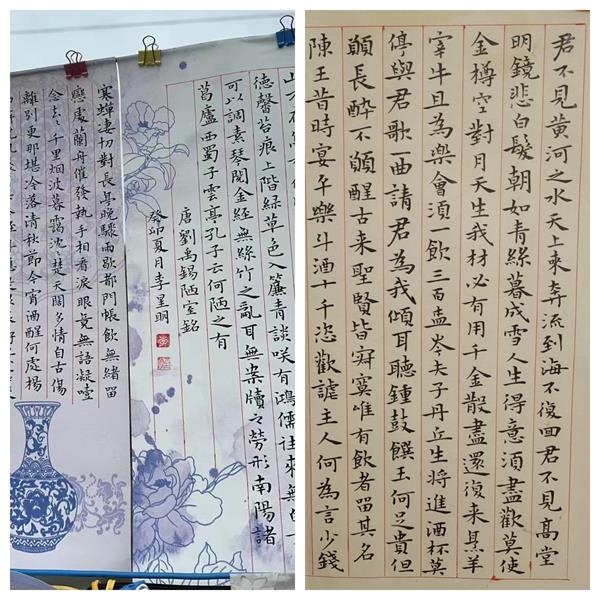 山不在
德馨苔痕上階綠草色入簾青談咲有鴻儒往来無
可以調素琴閱金經無絲竹之亂耳無案牘之勞形南陽諸
葛廬西蜀子雲亭孔子云何陋之有
唐劉禹錫陋室銘
癸卯夏月李星明
寒蟬淒切對長亭晚驟雨歇都門帳飲無緒留
戀處蘭舟催發執手相看淚眼竟無語凝噎
念去去千里烟波暮靄沈沈楚天闊多情自古傷
離別更那堪冷落清秋節今宵酒醒何處楊
君不見黃河之水天上来奔流到海不復回君不見高堂
明鏡悲白髮朝如青絲暮成雪人生得意須盡歡莫使
金樽空對月天生我材必有用千金散盡還復来烹羊
宰牛且為樂會須一飲三百盃岑夫子丹丘生将進酒杯莫
停與君歌一曲請君為我傾耳聽鍾鼓饌玉何足貴但
願長醉不願醒古来聖賢皆寂寞唯有飲者留其名
陳王昔時宴平樂斗酒十千恣歡謔主人何為言少錢